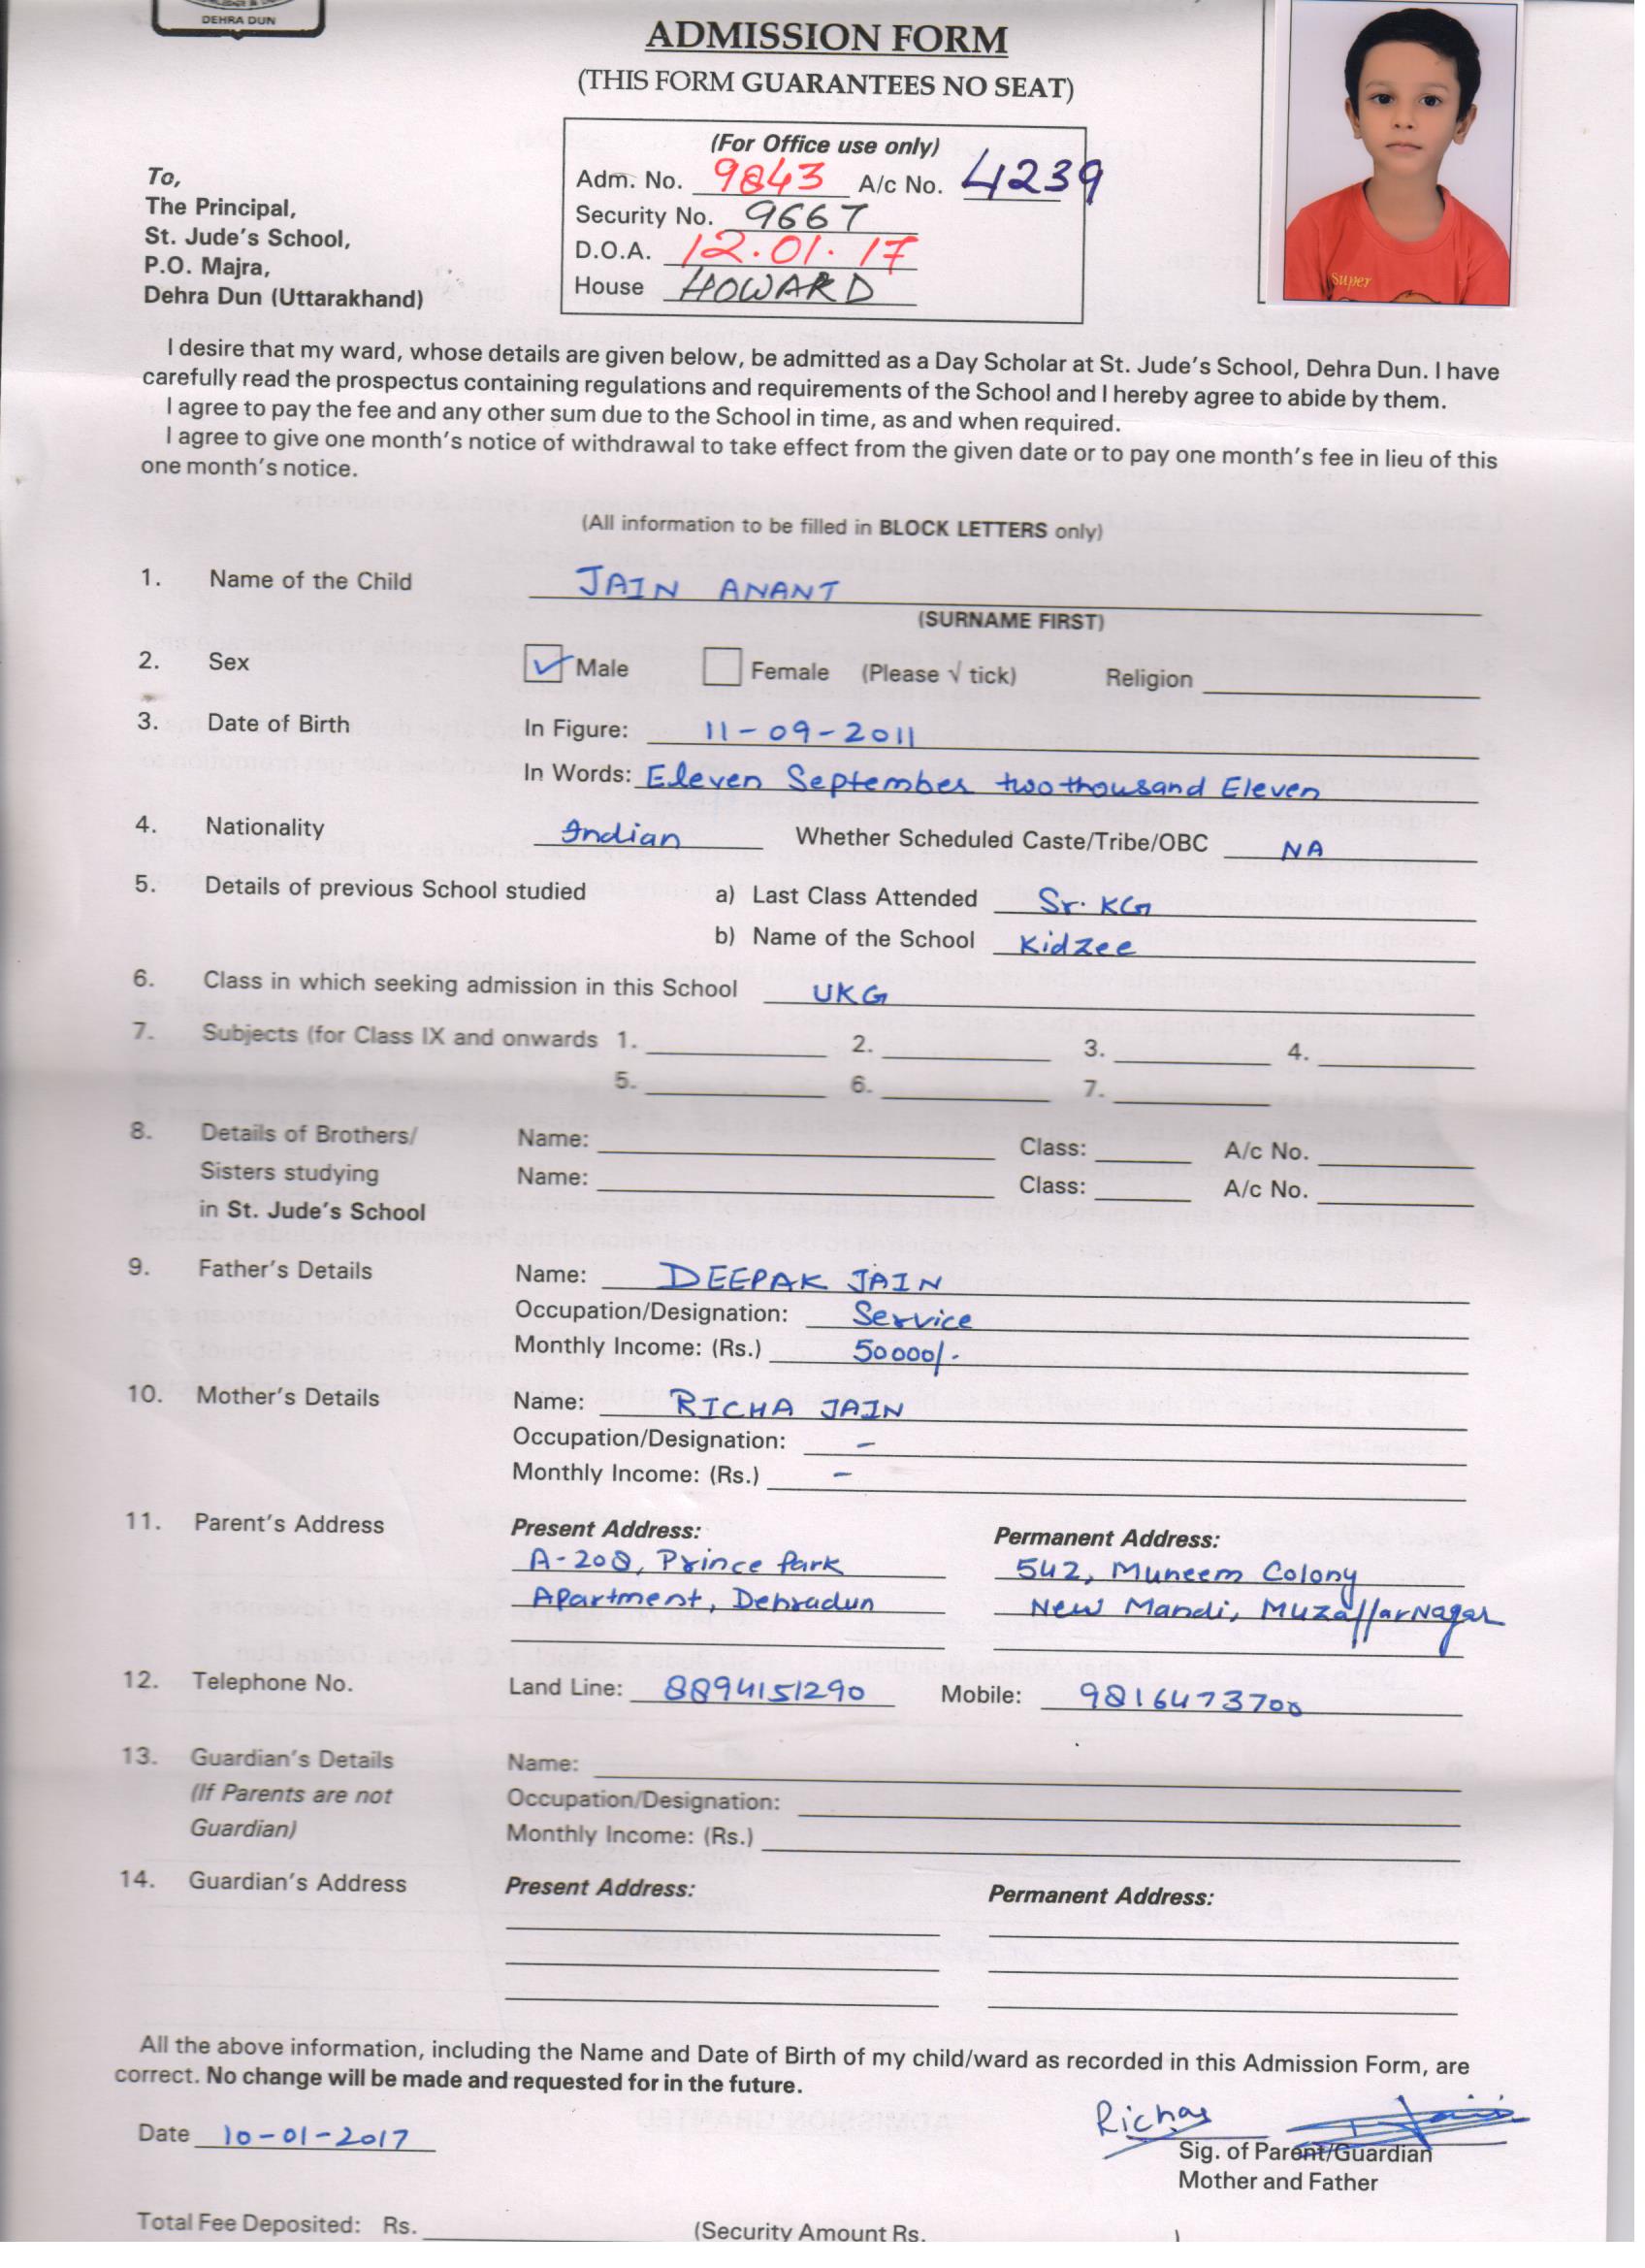 DEHRA DUN
ADMISSION FORM
(THIS FORM GUARANTEES NO SEAT)
(For Office use only)
Adm. No. 9843 A/c No. 4239
Security No. 9667
D.O.A. 12.01.17
House HOWARD
To,
The Principal,
St. Jude's School,
P.O. Majra,
Dehra Dun (Uttarakhand)
Super
I desire that my ward, whose details are given below, be admitted as a Day Scholar at St. Jude's School, Dehra Dun. I have
carefully read the prospectus containing regulations and requirements of the School and I hereby agree to abide by them.
I agree to pay the fee and any other sum due to the School in time, as and when required.
I agree to give one month's notice of withdrawal to take effect from the given date or to pay one month's fee in lieu of this
one month's notice.
(All information to be filled in BLOCK LETTERS only)
1. Name of the Child JAIN ANANT
(SURNAME FIRST)
2. Sex ✓ Male Female (Please √ tick) Religion
3. Date of Birth In Figure: 11-09-2011
In Words: Eleven September two thousand Eleven
4. Nationality Indian Whether Scheduled Caste/Tribe/OBC NA
5. Details of previous School studied a) Last Class Attended Sr. KG
b) Name of the School Kidzee
6. Class in which seeking admission in this School UKG
7. Subjects (for Class IX and onwards 1. 2. 3. 4.
5. 6. 7.
8. Details of Brothers/ Name: Class: A/c No.
Sisters studying Name: Class: A/c No.
in St. Jude's School
9. Father's Details Name: DEEPAK JAIN
Occupation/Designation: Service
Monthly Income: (Rs.) 50000/-
10. Mother's Details Name: RICHA JAIN
Occupation/Designation: -
Monthly Income: (Rs.) -
11. Parent's Address Present Address: Permanent Address:
A-208, Prince Park 542, Muneem Colony
Apartment, Dehradun New Mandi, Muzaffarnagar
12. Telephone No. Land Line: 8894151290 Mobile: 9816473700
13. Guardian's Details Name:
(If Parents are not Occupation/Designation:
Guardian) Monthly Income: (Rs.)
14. Guardian's Address Present Address: Permanent Address:
All the above information, including the Name and Date of Birth of my child/ward as recorded in this Admission Form, are
correct. No change will be made and requested for in the future.
Date 10-01-2017
Sig. of Parent/Guardian
Mother and Father
Total Fee Deposited: Rs. (Security Amount Rs. )